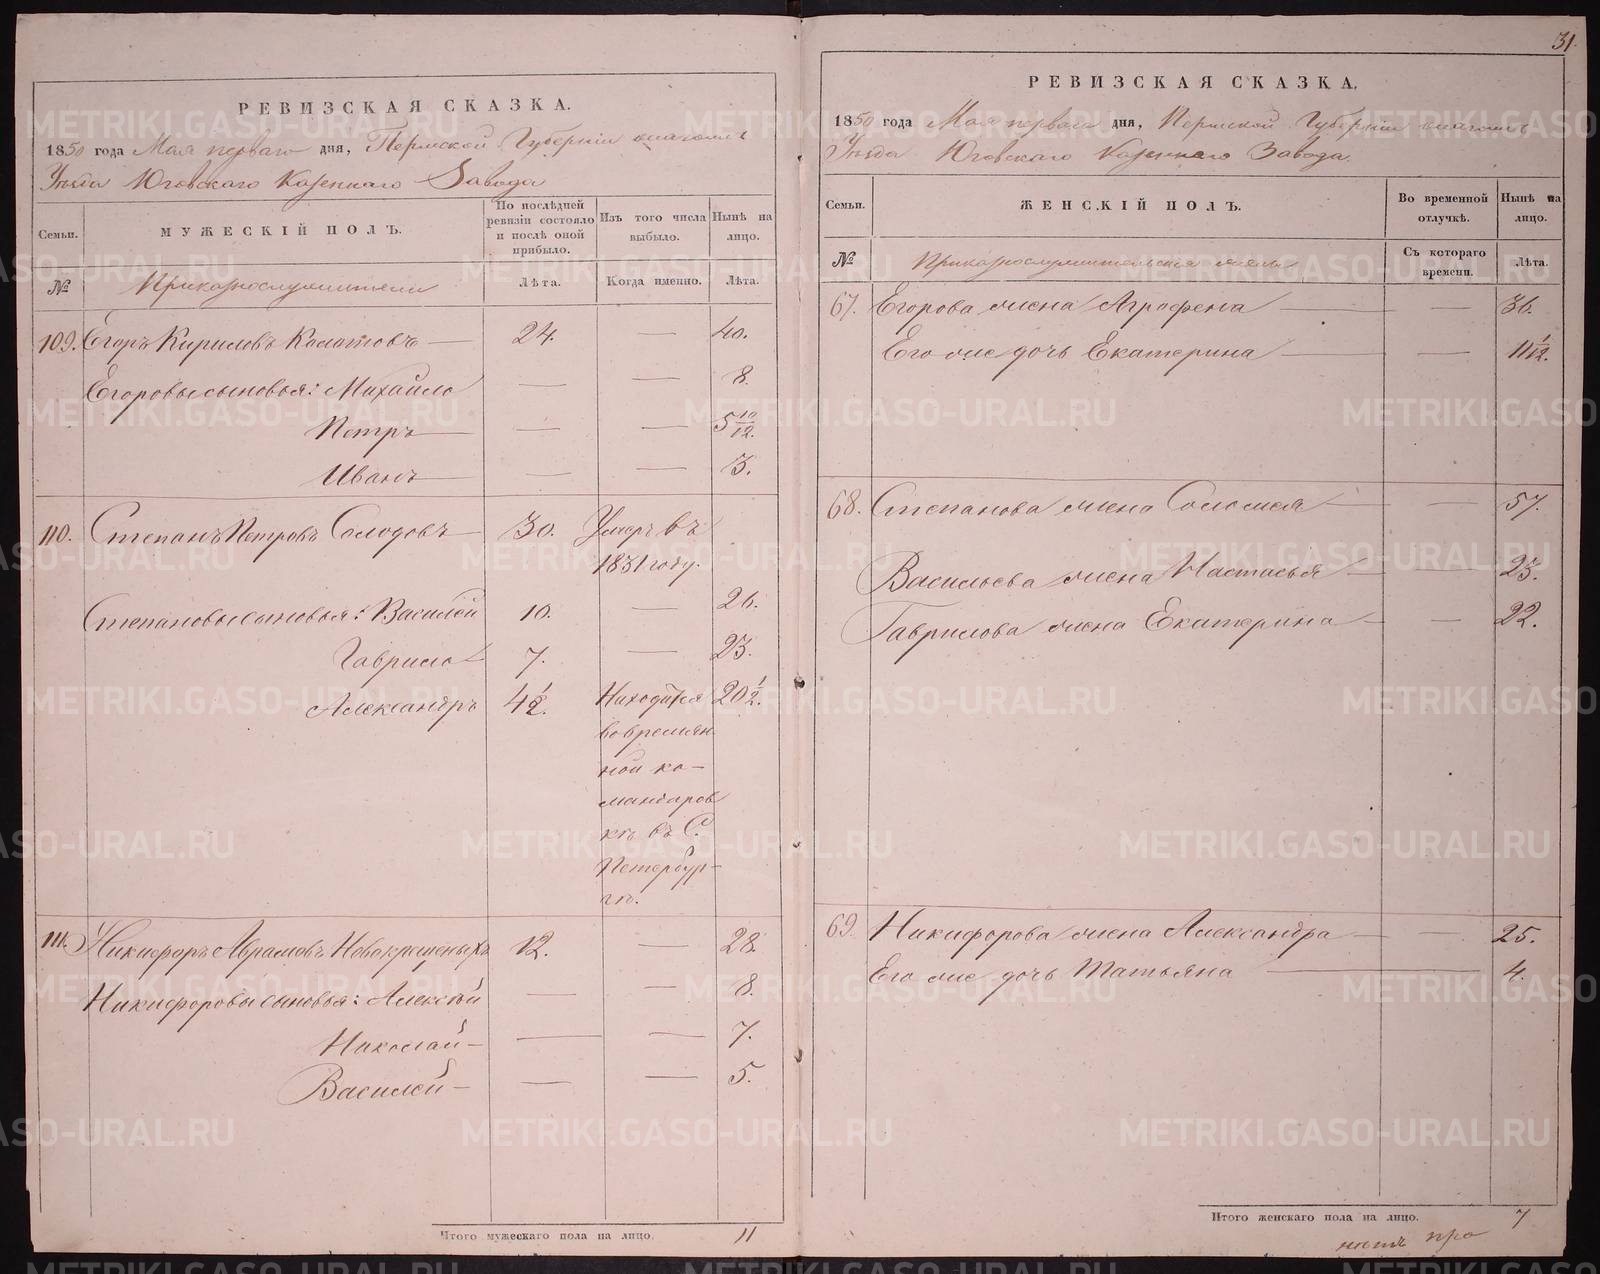 РЕВИЗСКАЯ СКАЗКА.
1850 года Мая перваго дня, Пермской Губерніи онагожъ
Уезда Юговскаго Казеннаго Завода
Семьи.
МУЖЕСКІЙ ПОЛЪ.
По последней ревизіи состояло и послѣ оной прибыло.
Изъ того числа выбыло.
Нынѣ на лицо.
№
Приказнослужители
Лѣта.
Когда именно.
Лѣта.
109. Егоръ Кириловъ Колотовъ — 24. — 40.
Егоровы сыновья: Михайло — — 8.
Петръ — — 5 10/12.
Иванъ — — 3.
110. Степанъ Петровъ Солодовъ — 30. Умеръ въ
1831 году.
Степановы сыновья: Василей 10. — 26.
Гаврило 7. — 23.
Александръ 4 1/2. Находится 20 1/2.
во времян
ной ко-
мандиров
кѣ въ С.
Петербур-
гѣ.
111. Никифоръ Аврамовъ Новокрещеныхъ 12. — 28.
Никифоровы сыновья: Алексѣй — — 8.
Николай — — — 7.
Василей — — — 5.
Итого мужескаго пола на лицо. 11
31.
РЕВИЗСКАЯ СКАЗКА.
1850 года Мая перваго дня, Пермской Губерніи онагожъ
Уѣзда Юговскаго Казеннаго Завода.
Семьи.
ЖЕНСКІЙ ПОЛЪ.
Во временной отлучкѣ.
Нынѣ на лицо.
№
Приказнослужительскія жены
Съ котораго времени.
Лѣта.
67. Егорова жена Аграфена — — 36.
Его же дочь Екатерина — — 11 1/12.
68. Степанова жена Соломея — — 57.
Васильева жена Настасья — — 23.
Гаврилова жена Екатерина — — 22.
69. Никифорова жена Александра — — 25.
Его же дочь Татьяна — 4.
Итого женскаго пола на лицо. 7
METRIKI.GASO-URAL.RU